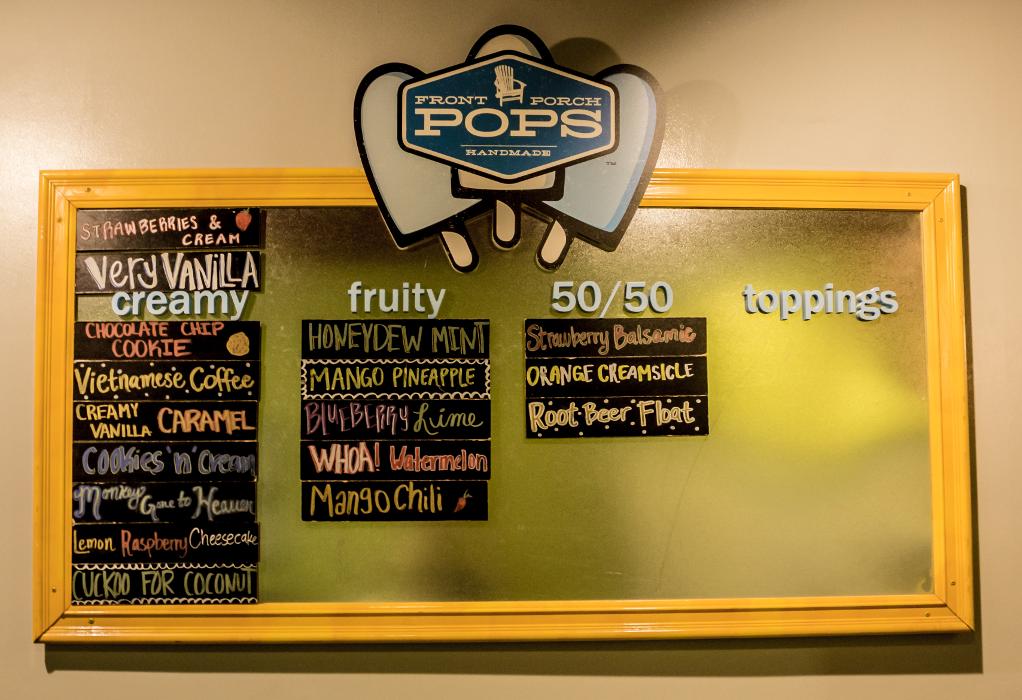 FRONT PORCH
POPS
HANDMADE
TM
STRAWBERRIES &
CREAM
Very VANILLA
creamy
CHOCOLATE CHIP
COOKIE
Vietnamese Coffee
CREAMY
VANILLA CARAMEL
COOKIES 'n' Cream
Monkeys Gone to Heaven
Lemon Raspberry Cheesecake
CUCKOO FOR COCONUT
fruity
HONEYDEW MINT
MANGO PINEAPPLE
BLUEBERRY Lime
WHOA! Watermelon
Mango Chili
50/50
Strawberry Balsamic
ORANGE CREAMSICLE
Root Beer Float
toppings